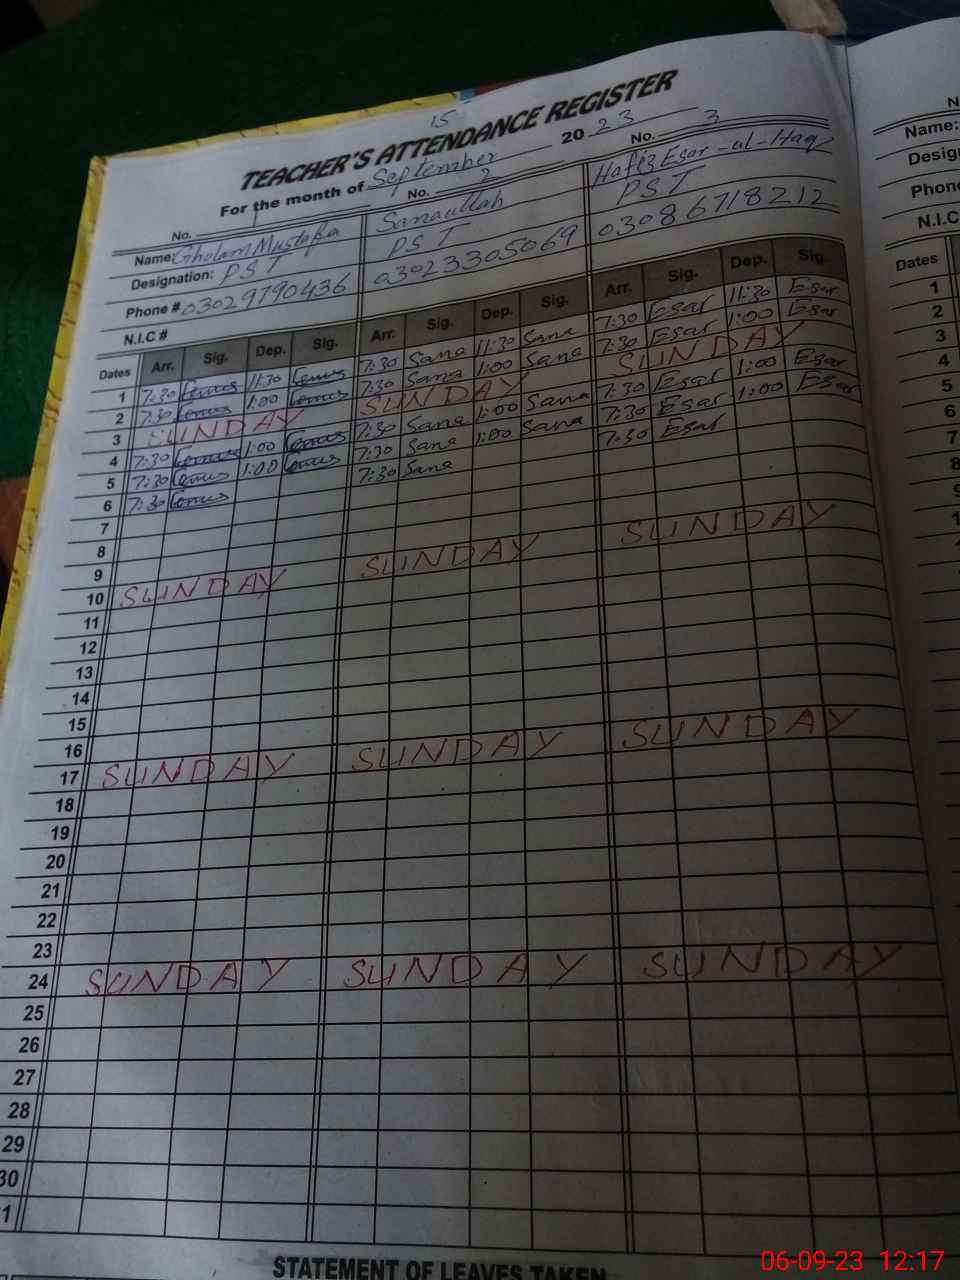 15
TEACHER'S ATTENDANCE REGISTER
For the month of September 2023
No. 1 No. 2 No. 3
Name: Gholam Mustafa Sanaullah Hafiz Esar-ul-Haq
Designation: PST PST PST
Phone # 03029790436 03023305069 03086718212
N.I.C #
Dates Arr. Sig. Dep. Sig. Arr. Sig. Dep. Sig. Arr. Sig. Dep. Sig.
1 7:30 11:30 7:30 Sana 11:30 Sana 7:30 Esar 11:30 Esar
2 7:30 1:00 7:30 Sana 1:00 Sana 7:30 Esar 1:00 Esar
3 SUNDAY SUNDAY SUNDAY
4 7:30 1:00 7:30 Sana 1:00 Sana 7:30 Esar 1:00 Esar
5 7:30 1:00 7:30 Sana 1:00 Sana 7:30 Esar 1:00 Esar
6 7:30 7:30 Sana 7:30 Esar
7
8
9
10 SUNDAY SUNDAY SUNDAY
11
12
13
14
15
16
17 SUNDAY SUNDAY SUNDAY
18
19
20
21
22
23
24 SUNDAY SUNDAY SUNDAY
25
26
27
28
29
30
1
STATEMENT OF LEAVES TAKEN
N
Name:
Desig
Phon
N.I.C
Dates
1
2
3
4
5
6
7
8
9
1
06-09-23 12:17